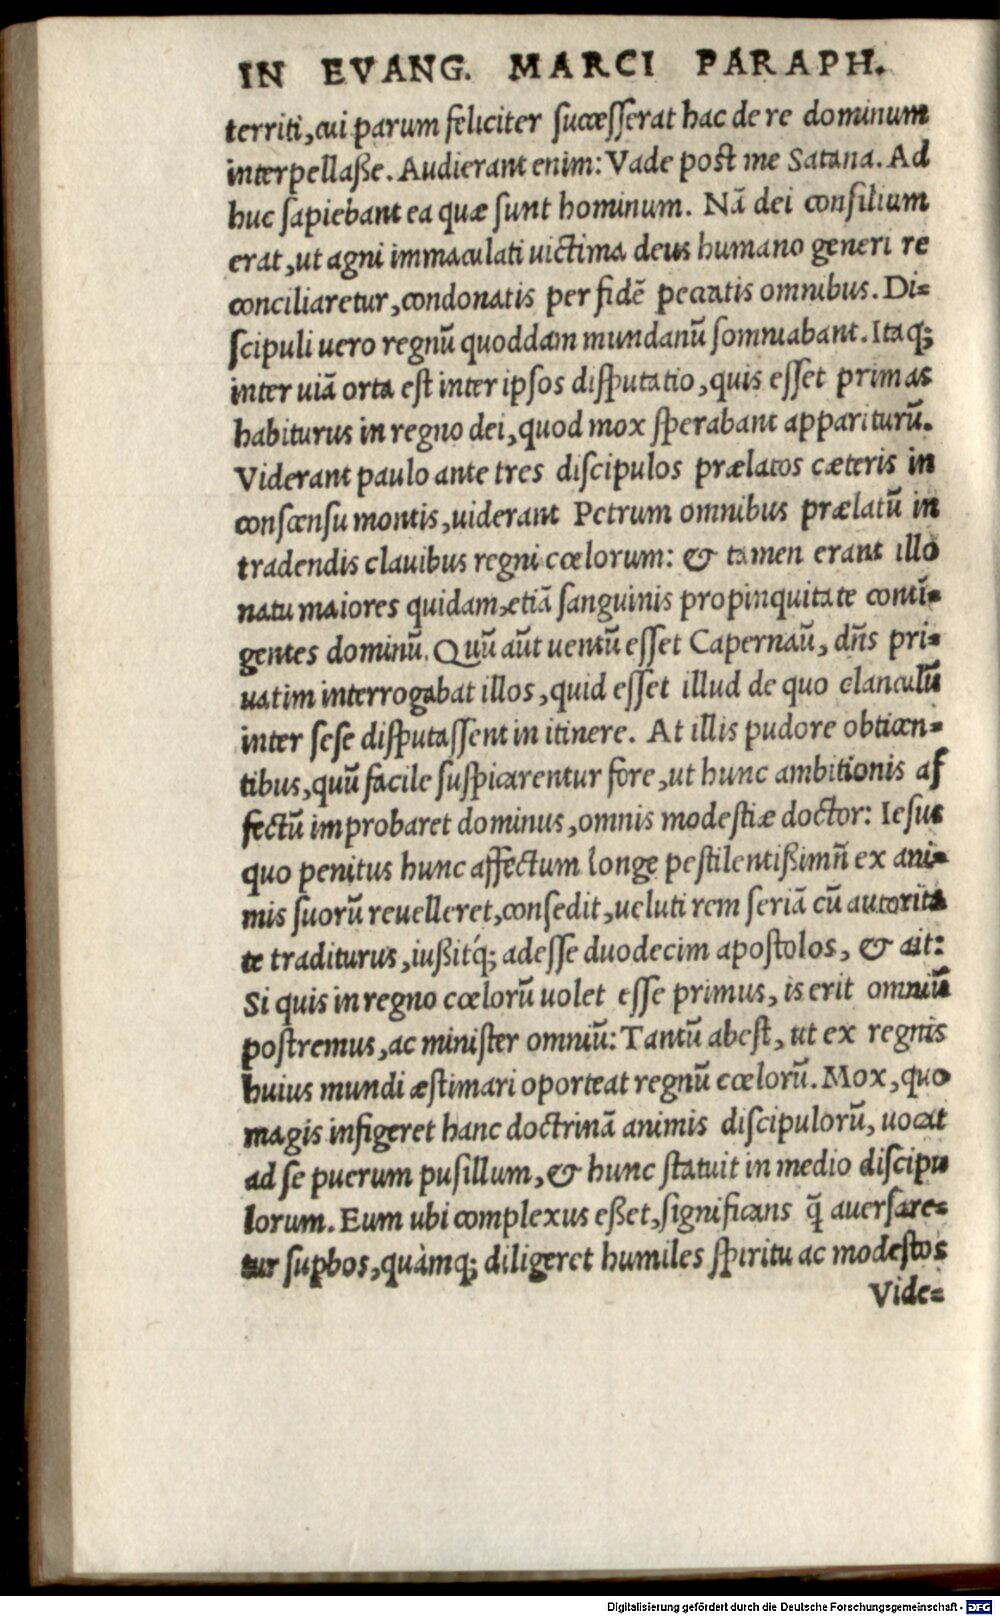 IN EVANG. MARCI PARAPH.
territi, cui parum feliciter successerat hac de re dominum
interpellaße. Audierant enim: Vade post me Satana. Ad
huc sapiebant ea quæ sunt hominum. Nā dei consilium
erat, ut agni immaculati uictima deus humano generi re
conciliaretur, condonatis per fidē peccatis omnibus. Di=
scipuli uero regnū quoddam mundanū somniabant. Itaq;
inter uiā orta est inter ipsos disputatio, quis esset primas
habiturus in regno dei, quod mox sperabant appariturū.
Viderant paulo ante tres discipulos prælatos cæteris in
conscensu montis, uiderant Petrum omnibus prælatū in
tradendis clauibus regni cœlorum: & tamen erant illo
natu maiores quidam, etiā sanguinis propinquitate contī=
gentes dominū. Quū aūt uentū esset Capernaū, dñs pri=
uatim interrogabat illos, quid esset illud de quo clanculū
inter sese disputassent in itinere. At illis pudore obticen=
tibus, quū facile suspicarentur fore, ut hunc ambitionis af
fectū improbaret dominus, omnis modestiæ doctor: Iesus
quo penitus hunc affectum longe pestilentißimū ex ani=
mis suorū reuelleret, consedit, ueluti rem seriā cū autorita
te traditurus, iußitq́; adesse duodecim apostolos, & ait:
Si quis in regno cœlorū uolet esse primus, is erit omniū
postremus, ac minister omniū: Tantū abest, ut ex regnis
huius mundi æstimari oporteat regnū cœlorū. Mox, quo
magis infigeret hanc doctrinā animis discipulorū, uocat
ad se puerum pusillum, & hunc statuit in medio discipu
lorum. Eum ubi complexus eßet, significans q̄ auersare=
tur supbos, quàmq; diligeret humiles spiritu ac modestos
Vide=
Digitalisierung gefördert durch die Deutsche Forschungsgemeinschaft - DFG